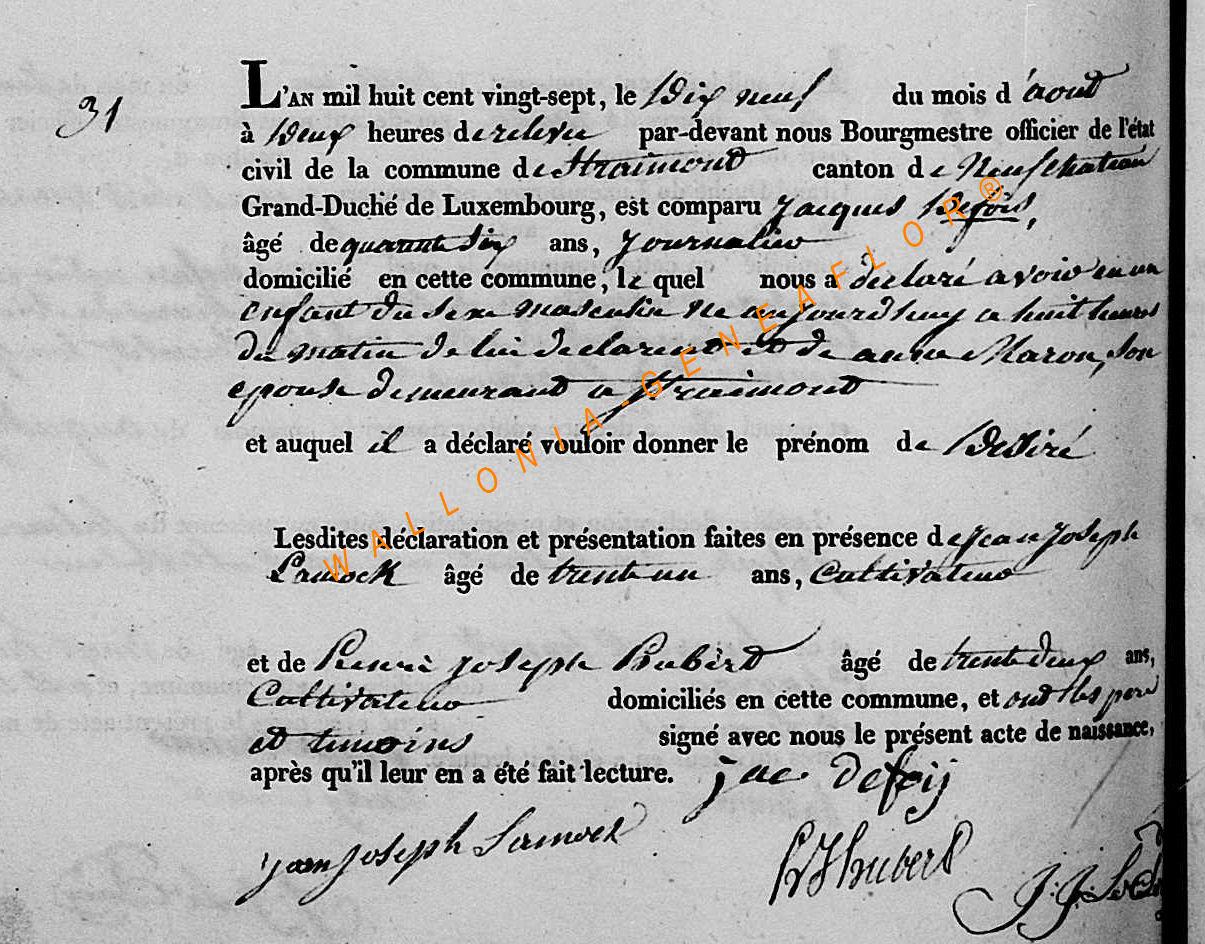 31
L'AN mil huit cent vingt-sept, le Dix neuf du mois d'aout
à Deux heures de relevée par-devant nous Bourgmestre officier de l'état
civil de la commune de Straimont canton de Neufchateau
Grand-Duché de Luxembourg, est comparu Jacques Defois,
âgé de quarant six ans, Journalier
domicilié en cette commune, le quel nous a declaré avoir eu un
enfant du sexe masculin né aujourd'huy a huit heures
du matin de lui declarant et de anne Maron, son
epouse demeurant a Straimont
et auquel il a déclaré vouloir donner le prénom de Désiré
Lesdites déclaration et présentation faites en présence de jean joseph
Lamock âgé de trent un ans, Cultivateur
et de Henri joseph Hubert âgé de trent deux ans,
Cultivateur domiciliés en cette commune, et ont les pere
et temoins signé avec nous le présent acte de naissance,
après qu'il leur en a été fait lecture. jac defoij
jean joseph Lamock
HJ hubert
J: J:
WALLONIA-GENEAFLOR®